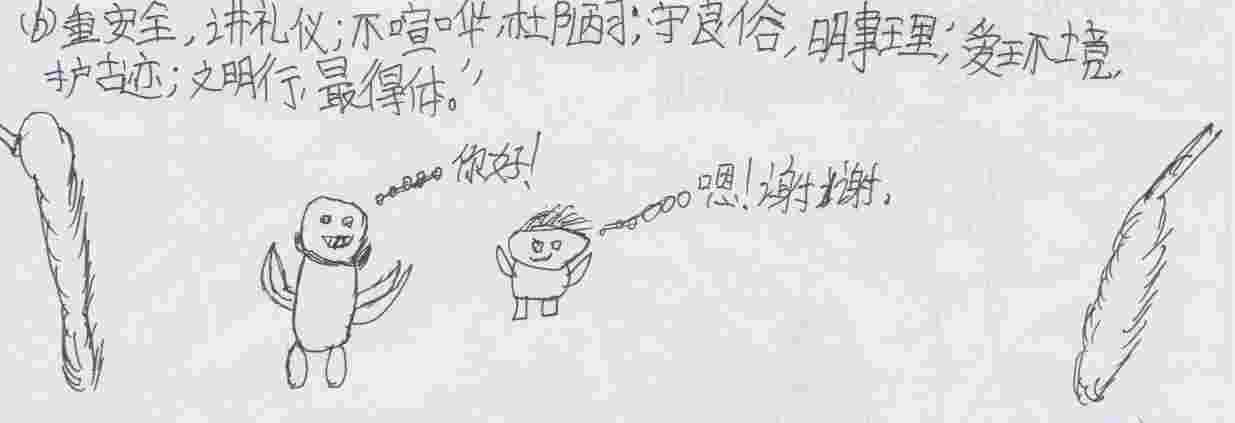 (6)重安全,讲礼仪;不喧哗,杜陋习;守良俗,明事理;爱环境,
护古迹;文明行,最得体。”
你好!
嗯!谢谢。